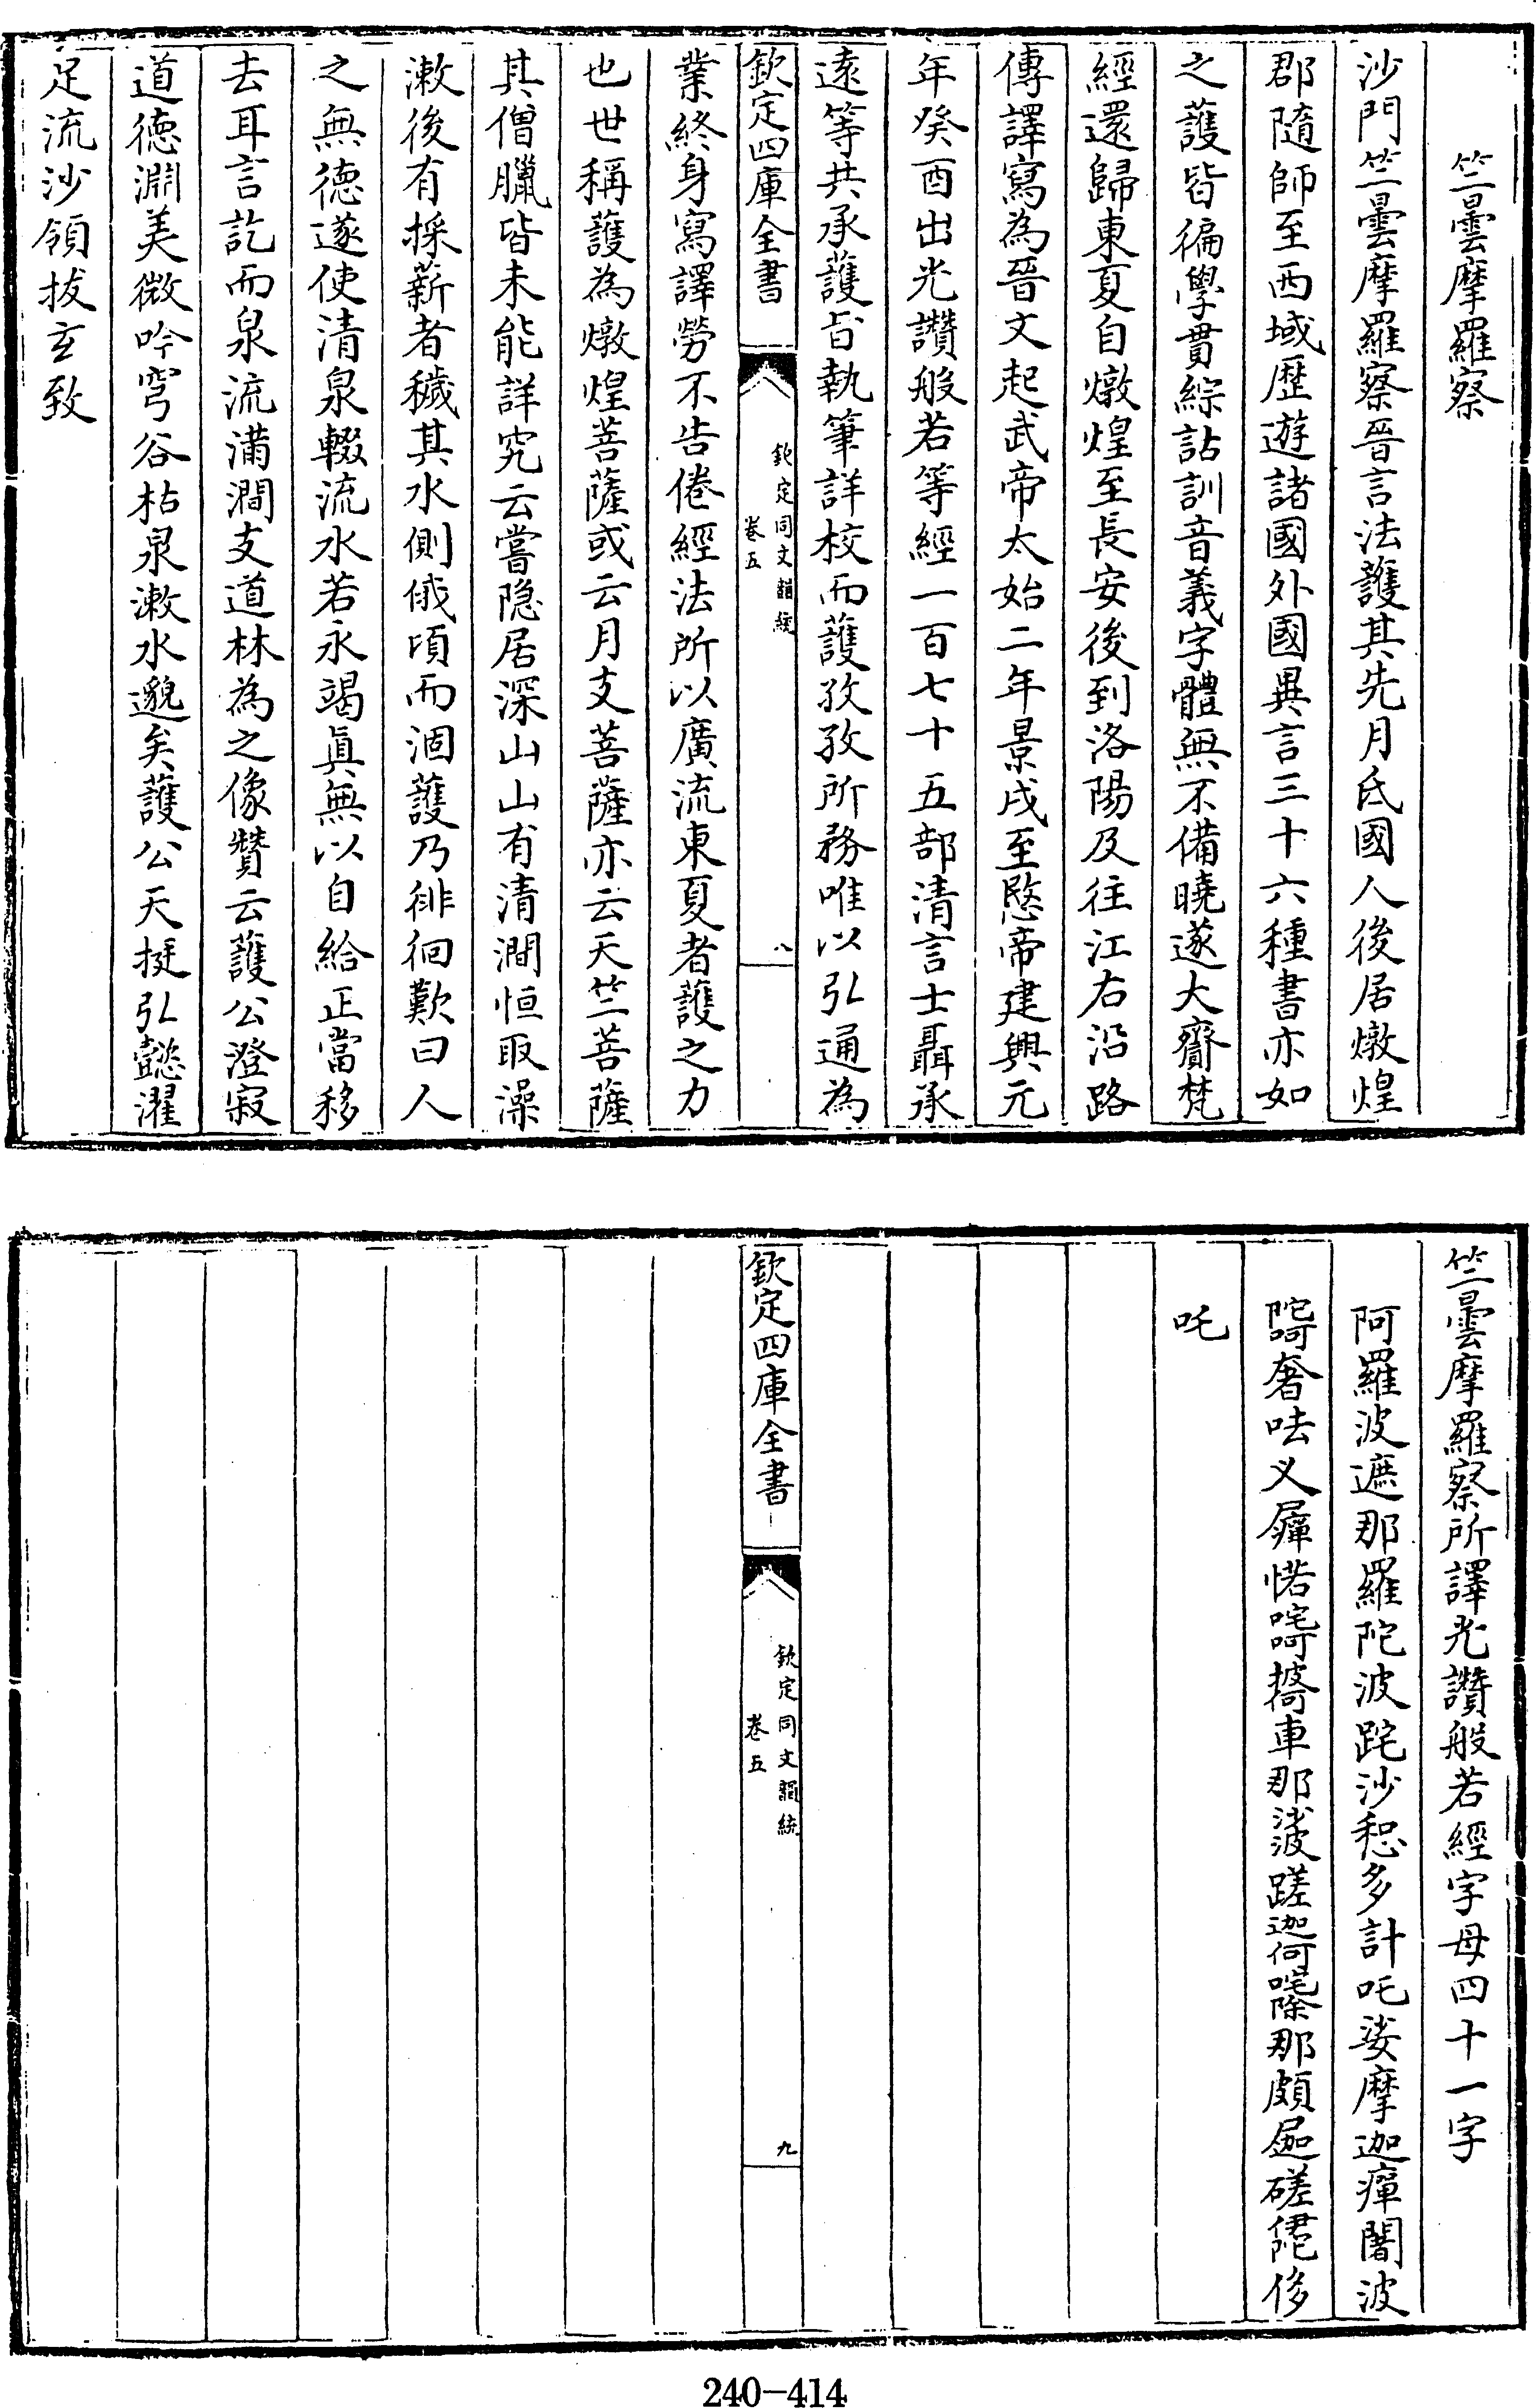 竺曇摩羅察
沙門竺曇摩羅察晉言法護其先月氏國人後居燉煌
郡隨師至西域歷遊諸國外國異言三十六種書亦如
之護皆徧學貫綜詁訓音義字體無不備曉遂大齎梵
經還歸東夏自燉煌至長安後到洛陽及往江右沿路
傳譯寫為晉文起武帝太始二年景戌至愍帝建興元
年癸酉出光讚般若等經一百七十五部清言士聶承
遠等共承護旨執筆詳校而護孜孜所務唯以弘通為
欽定四庫全書
欽定同文韻統
卷五
八
業終身寫譯勞不告倦經法所以廣流東夏者護之力
也世稱護為燉煌菩薩或云月支菩薩亦云天竺菩薩
其僧臘皆未能詳究云嘗隐居深山山有清澗恒取澡
漱後有採薪者穢其水側俄頃而涸護乃徘徊歎曰人
之無德遂使清泉輟流水若永竭眞無以自給正當移
去耳言訖而泉流滿澗支道林為之像贊云護公澄寂
道德淵美微吟穹谷枯泉漱水邈矣護公天挺弘懿濯
足流沙領拔玄致
竺曇摩羅察所譯光讚般若經字母四十一字
阿羅波遮那羅陀波跎沙惒多計吒娑摩迦癉闍波
奢呿义惹車那蹉迦何那頗磋侈
吒
欽定四庫全書
欽定同文韻統
卷五
九
240-414